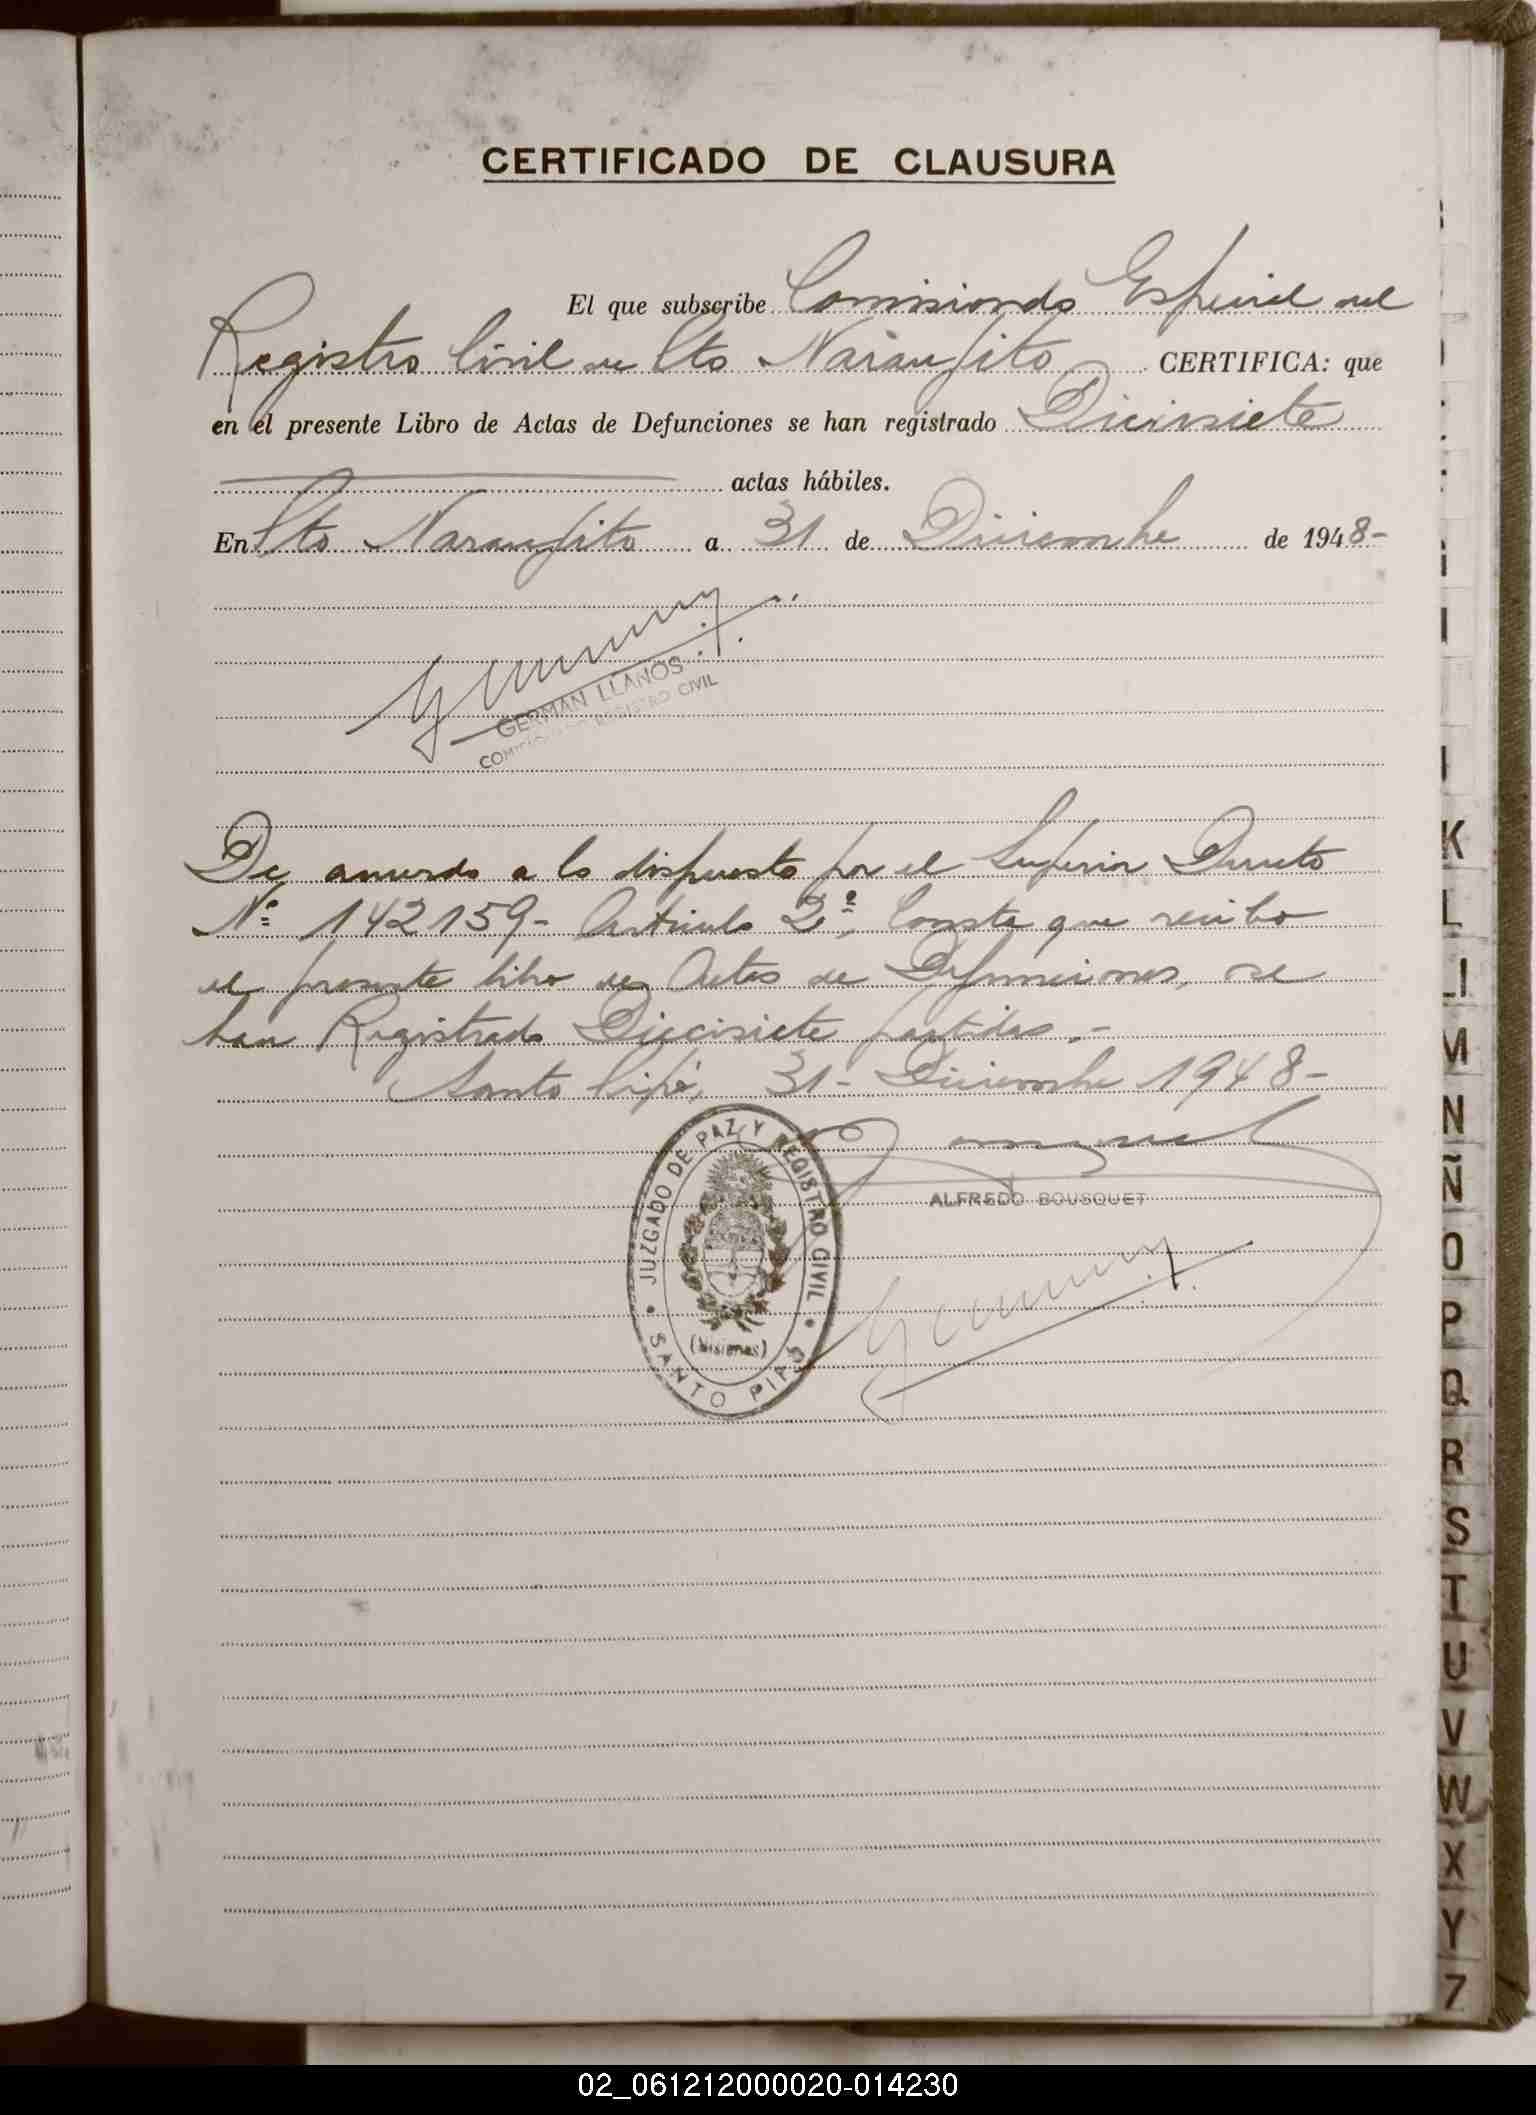 CERTIFICADO DE CLAUSURA
El que subscribe Comisionado Especial del
Registro Civil de Sto Naranjito CERTIFICA: que
en el presente Libro de Actas de Defunciones se han registrado Diecisiete
actas hábiles.
En Sto Naranjito a 31 de Diciembre de 1948-
GERMAN LLANOS
REGISTRO CIVIL
De acuerdo a lo dispuesto por el Superior Decreto
Nº 142159- Articulo 2º, Consta que recibo
el presente libro de Actas de Defunciones, se
han Registrado Diecisiete partidas.-
Santo Pipó, 31- Diciembre 1948-
ALFREDO BOUSQUET
JUZGADO DE PAZ Y REGISTRO CIVIL
(Misiones)
SANTO PIPÓ
K
L
LI
M
N
Ñ
O
P
Q
R
S
T
U
V
W
X
Y
Z
02_061212000020-014230